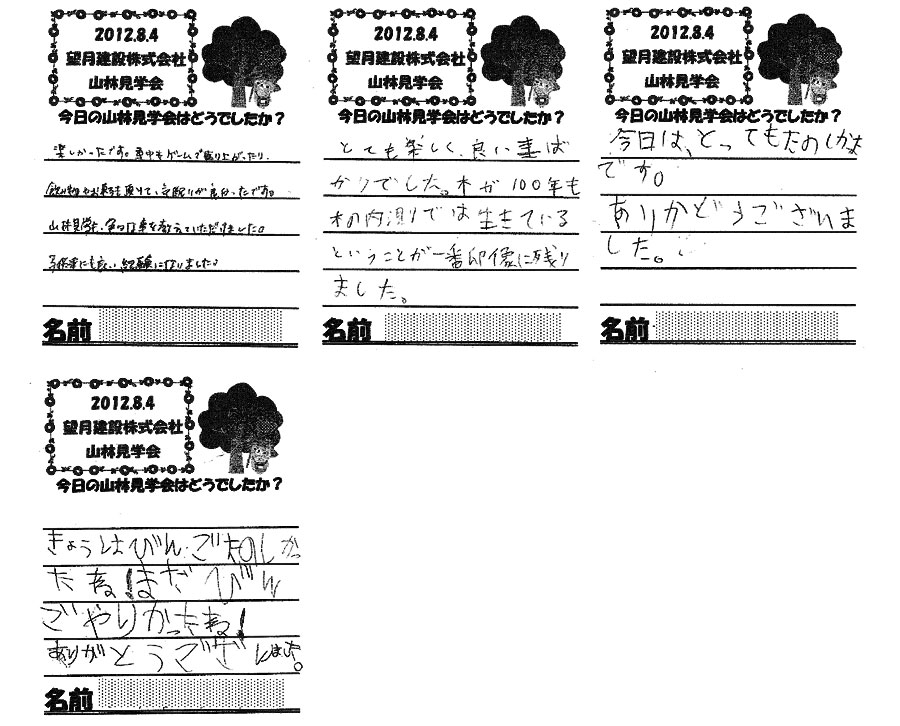 2012.8.4
望月建設株式会社
山林見学会
今日の山林見学会はどうでしたか?
楽しかったです。車中もゲームで盛り上がったり、
飲み物やお菓子も頂けて、気配りが良かったです。
山林見学も、色々な事を教えていただけました。
子供達にも良い経験になりました。
名前
2012.8.4
望月建設株式会社
山林見学会
今日の山林見学会はどうでしたか?
とても楽しく、良い事ば
かりでした。木が100年も
木の内測りでは生きている
ということが一番印像に残り
ました。
名前
2012.8.4
望月建設株式会社
山林見学会
今日の山林見学会はどうでしたか?
今日は、とってもたのしかった
です。
ありがとうございま
した。
名前
2012.8.4
望月建設株式会社
山林見学会
今日の山林見学会はどうでしたか?
きょうはびんごたのしかっ
たね!まだびん
ごやりかったね!
ありがとうござ
名前